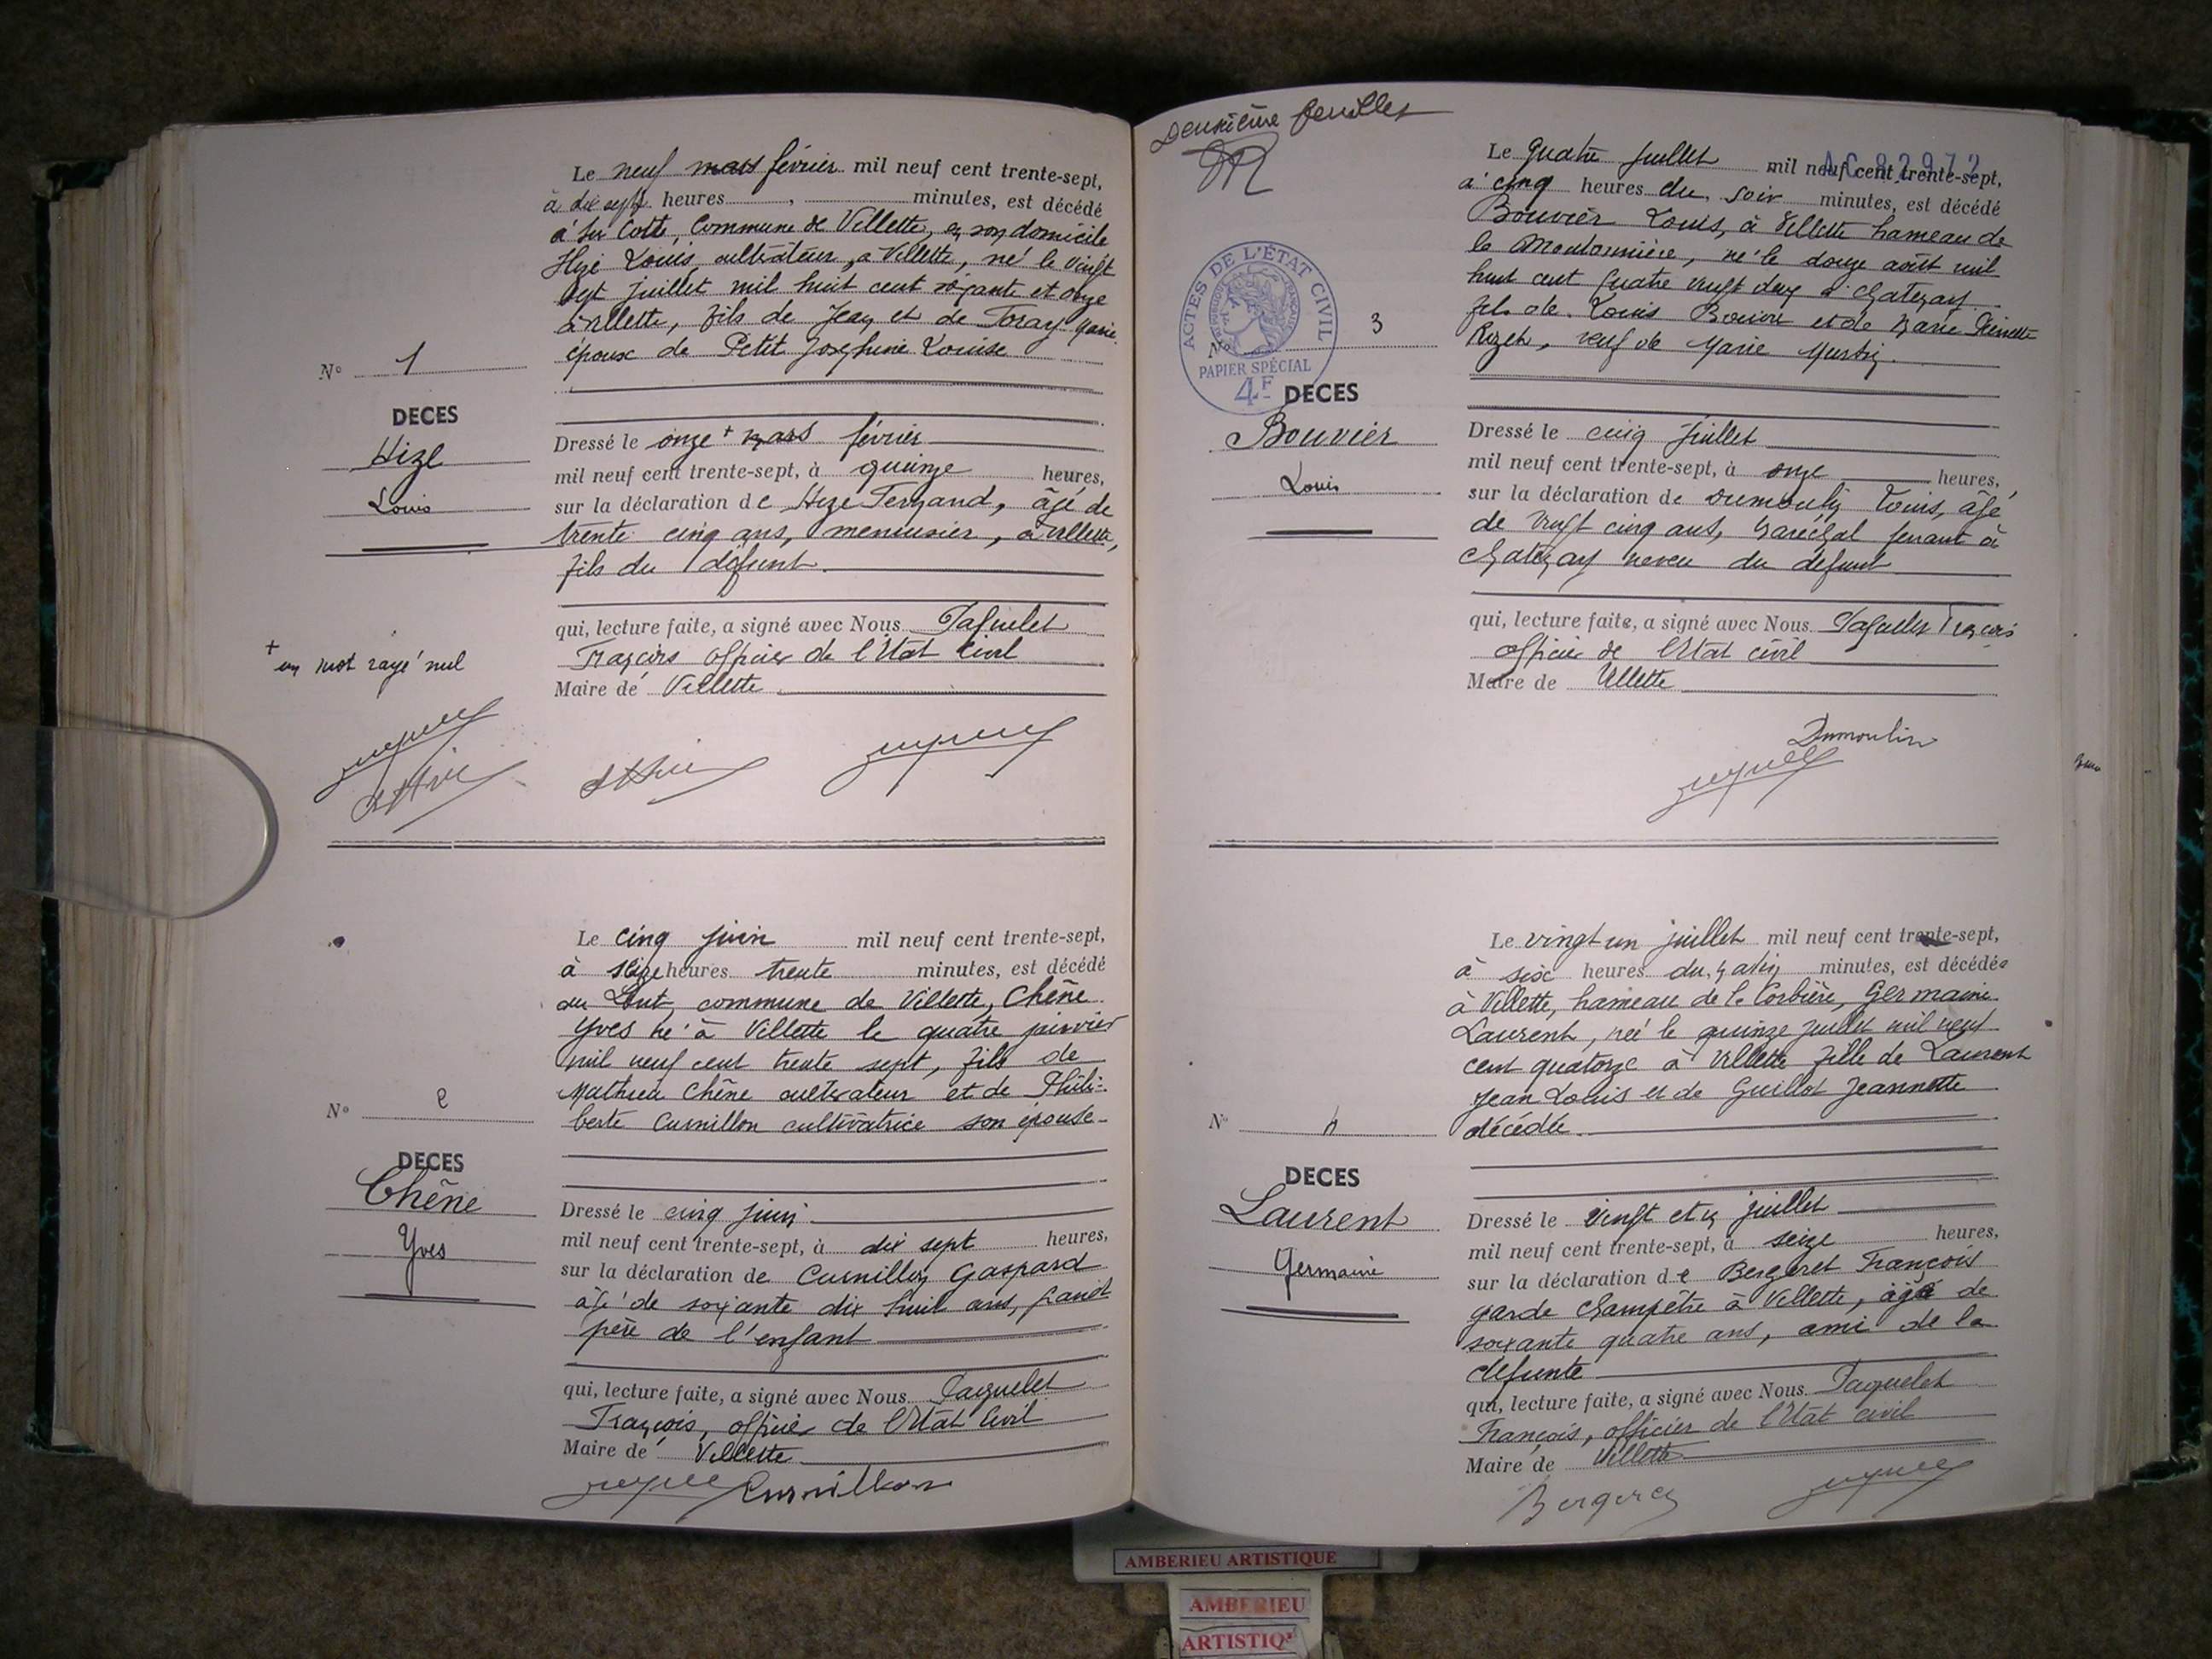 Le neuf mars février mil neuf cent trente-sept,
à dix sept heures minutes, est décédé
a Sur Cotte, Commune de Villette, en son domicile
Hize Louis, cultivateur, à Villette, né le vingt
sept juillet mil huit cent soixante et onze
à Villette, fils de Jean et de Foray Marie
époux de Petit Joséphine Louise
N° 1
DECES
Hize
Louis
Dressé le onze + mars février
mil neuf cent trente-sept, à quinze heures,
sur la déclaration de Hize Fernand, âgé de
trente cinq ans, menuisier, à Villette,
fils du défunt.
qui, lecture faite, a signé avec Nous Paquelet
François officier de l'Etat Civil
Maire de Villette
+ un mot rayé nul
Le cinq juin mil neuf cent trente-sept,
à seize heures trente minutes, est décédé
au commune de Villette, Chêne
Yves né à Villette le quatre janvier
mil neuf cent trente sept, fils de
Mathieu Chêne cultivateur et de Phili-
berte Curnillon cultivatrice son épouse-
N° 2
DECES
Chêne
Yves
Dressé le cinq juin
mil neuf cent trente-sept, à dix sept heures,
sur la déclaration de Curnillon Gaspard
âgé de soixante dix huit ans, grand
père de l'enfant
qui, lecture faite, a signé avec Nous Paquelet
François, officier de l'Etat Civil
Maire de Villette
Curnillon
Deuxième feuillet
AC 82972
Le quatre juillet mil neuf cent trente-sept,
à cinq heures du soir minutes, est décédé
Bouvier Louis, à Villette hameau de
la Moutonnière, né le douze août mil
huit cent quatre vingt deux à Chatenay
fils de Louis Bouvier et de Marie
veuf de Marie
ACTES DE L'ÉTAT CIVIL
RÉPUBLIQUE FRANÇAISE
PAPIER SPÉCIAL
4F
N° 3
DECES
Bouvier
Louis
Dressé le cinq juillet
mil neuf cent trente-sept, à onze heures,
sur la déclaration de Dumoulin Louis, âgé
de vingt cinq ans, maréchal ferrant à
Chatenay neveu du defunt
qui, lecture faite, a signé avec Nous Paquelet François
officier de l'Etat civil
Maire de Villette
Dumoulin
Le vingt un juillet mil neuf cent trente-sept,
à six heures du matin minutes, est décédée
à Villette, hameau de la Corbière, Germaine
Laurent, née le quinze juillet mil neuf
cent quatorze à Villette fille de Laurent
Jean Louis et de Guillot Jeannette
décédée.
N° 4
DECES
Laurent
Germaine
Dressé le vingt et un juillet
mil neuf cent trente-sept, à seize heures,
sur la déclaration de Bergeret François
garde champêtre à Villette, âgé de
soixante quatre ans, ami de la
défunte
qui, lecture faite, a signé avec Nous Paquelet
François, officier de l'Etat civil
Maire de Villette
Bergeret
AMBERIEU ARTISTIQUE
AMBERIEU
ARTISTIQ